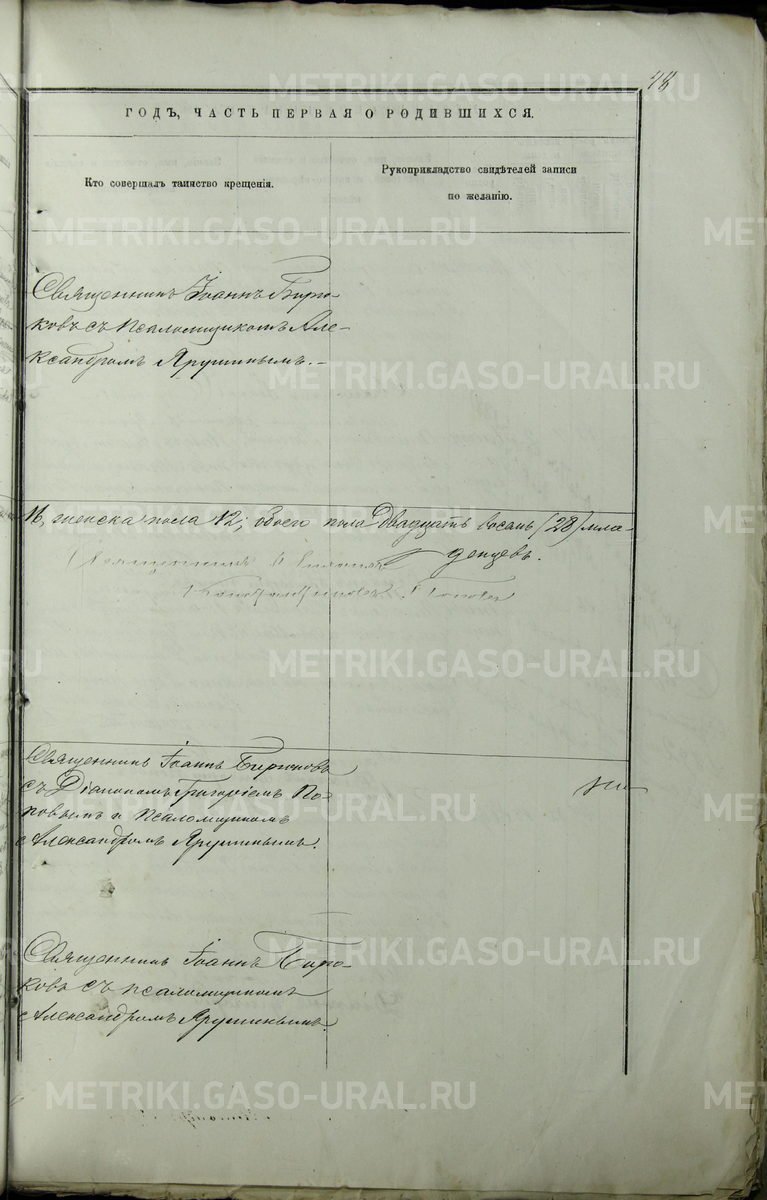 48
ГОДЪ, ЧАСТЬ ПЕРВАЯ О РОДИВШИХСЯ.
Кто совершалъ таинство крещенія.
Рукоприкладство свидѣтелей записи
по желанію.
Священникъ Іоаннъ Бирю-
ковъ съ псаломщикомъ Але-
ксандромъ Ярушинымъ.-
16, женска пола 12; обоего пола двадцать восемь (28) мла-
денцевъ.
Священникъ
Священникъ Іоаннъ Бирюковъ
съ Діакономъ Григоріемъ По-
повымъ и Псаломщикомъ
Александромъ Ярушинымъ.
Священникъ Іоаннъ Бирю-
ковъ съ псаломщикомъ
Александромъ Ярушинымъ.
METRIKI.GASO-URAL.RU